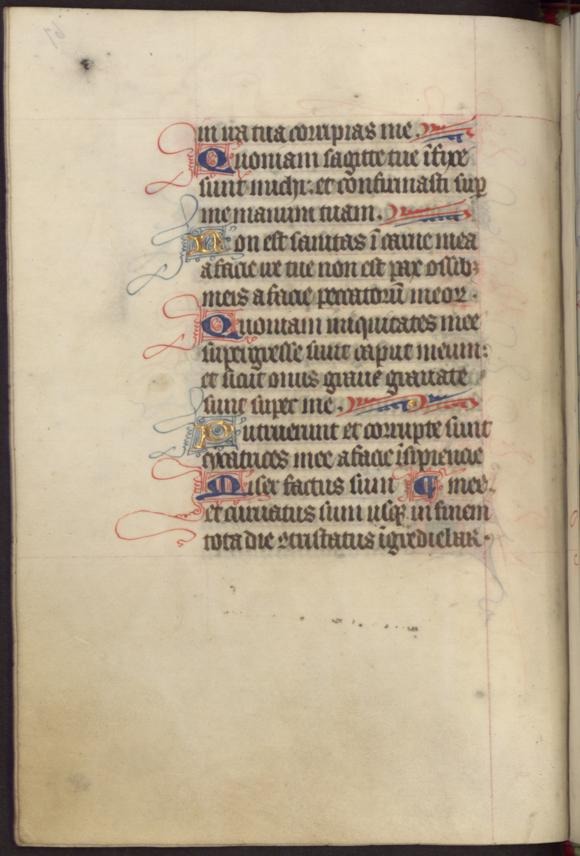 in ira tua corripias me.
Quoniam sagitte tue ifixe
sunt michi: et confirmasti sup
me manum tuam.
Non est sanitas i carne mea
a facie ire tue non est pax ossib3
meis a facie peccatorū meoꝝ.
Quoniam iniquitates mee
supergresse sunt caput meum:
et sicut onus graue grauate
sunt super me.
Putruerunt et corrupte sunt
cycatrices mee a facie isipiencie
Miser factus sum ¶ mee.
et curuatus sum usqꝫ in finem
tota die ꝯtristatus igrediebar.